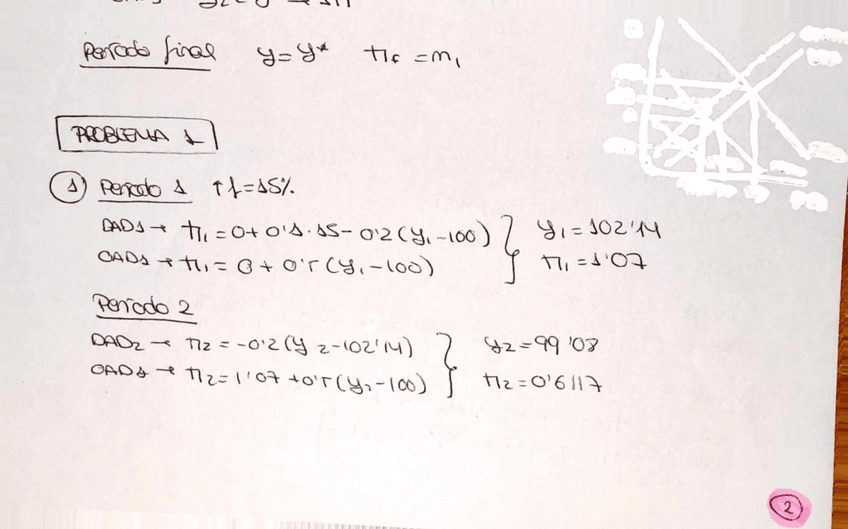 Periodo final y=y* π_f = m₁
PROBLEMA 1
① Periodo 1 ↑f=15%
DAD1 → π₁ = 0+0'1·15-0'2(y₁-100) } y₁=102'14
OAD1 → π₁ = 0+0'5(y₁-100) π₁=1'07
Periodo 2
DAD2 → π2 = -0'2(y2-102'14) } y2=99'08
OAD1 → π2=1'07+0'5(y2-100) π2=0'6117
②